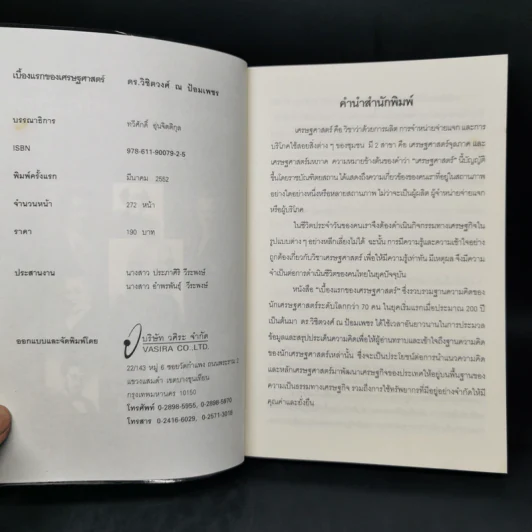 เบื้องแรกของเศรษฐศาสตร์ ดร.วิชิตวงศ์ ณ ป้อมเพชร
บรรณาธิการ ทวีศักดิ์ อุ่นจิตติกุล
ISBN 978-611-90079-2-5
พิมพ์ครั้งแรก มีนาคม 2552
จำนวนหน้า 272 หน้า
ราคา 190 บาท
ประสานงาน นางสาว ประภาศิริ วีระพงษ์
นางสาว อำพรพันธุ์ วีระพงษ์
ออกแบบและจัดพิมพ์โดย บริษัท วศิระ จำกัด
VASIRA CO.,LTD.
22/143 หมู่ 6 ซอยวัดกำแพง ถนนพระราม 2
แขวงแสมดำ เขตบางขุนเทียน
กรุงเทพมหานคร 10150
โทรศัพท์ 0-2896-5955, 0-2898-5970
โทรสาร 0-2416-6029, 0-2571-3018
คำนำสำนักพิมพ์
เศรษฐศาสตร์ คือ วิชาว่าด้วยการผลิต การจำหน่ายจ่ายแจก และการ
บริโภคใช้สอยสิ่งต่าง ๆ ของชุมชน มี 2 สาขา คือ เศรษฐศาสตร์จุลภาค และ
เศรษฐศาสตร์มหภาค ความหมายข้างต้นของคำว่า "เศรษฐศาสตร์" นี้บัญญัติ
ขึ้นโดยราชบัณฑิตยสถาน ได้แสดงถึงความเกี่ยวข้องของคนเราที่อยู่ในสถานภาพ
อย่างใดอย่างหนึ่งหรือหลายสถานภาพ ไม่ว่าจะเป็นผู้ผลิต ผู้จำหน่ายจ่ายแจก
หรือผู้บริโภค
ในชีวิตประจำวันของคนเราจึงต้องดำเนินกิจกรรมทางเศรษฐกิจใน
รูปแบบต่าง ๆ อย่างหลีกเลี่ยงไม่ได้ ฉะนั้น การมีความรู้และความเข้าใจอย่าง
ถูกต้องเกี่ยวกับวิชาเศรษฐศาสตร์ เพื่อให้มีความรู้เท่าทัน มีเหตุผล จึงมีความ
จำเป็นต่อการดำเนินชีวิตของคนไทยในยุคปัจจุบัน
หนังสือ "เบื้องแรกของเศรษฐศาสตร์" ซึ่งรวบรวมฐานความคิดของ
นักเศรษฐศาสตร์ระดับโลกกว่า 70 คน ในยุคเริ่มแรกเมื่อประมาณ 200 ปี
เป็นต้นมา ดร.วิชิตวงศ์ ณ ป้อมเพชร ได้ใช้เวลาอันยาวนานในการประมวล
ข้อมูลและสรุปประเด็นความคิดเพื่อให้ผู้อ่านทราบและเข้าใจถึงฐานความคิด
ของนักเศรษฐศาสตร์เหล่านั้น ซึ่งจะเป็นประโยชน์ต่อการนำแนวความคิด
และหลักเศรษฐศาสตร์มาพัฒนาเศรษฐกิจของประเทศให้อยู่บนพื้นฐานของ
ความเป็นธรรมทางเศรษฐกิจ รวมถึงการใช้ทรัพยากรที่มีอยู่อย่างจำกัดให้มี
คุณค่าและยั่งยืน